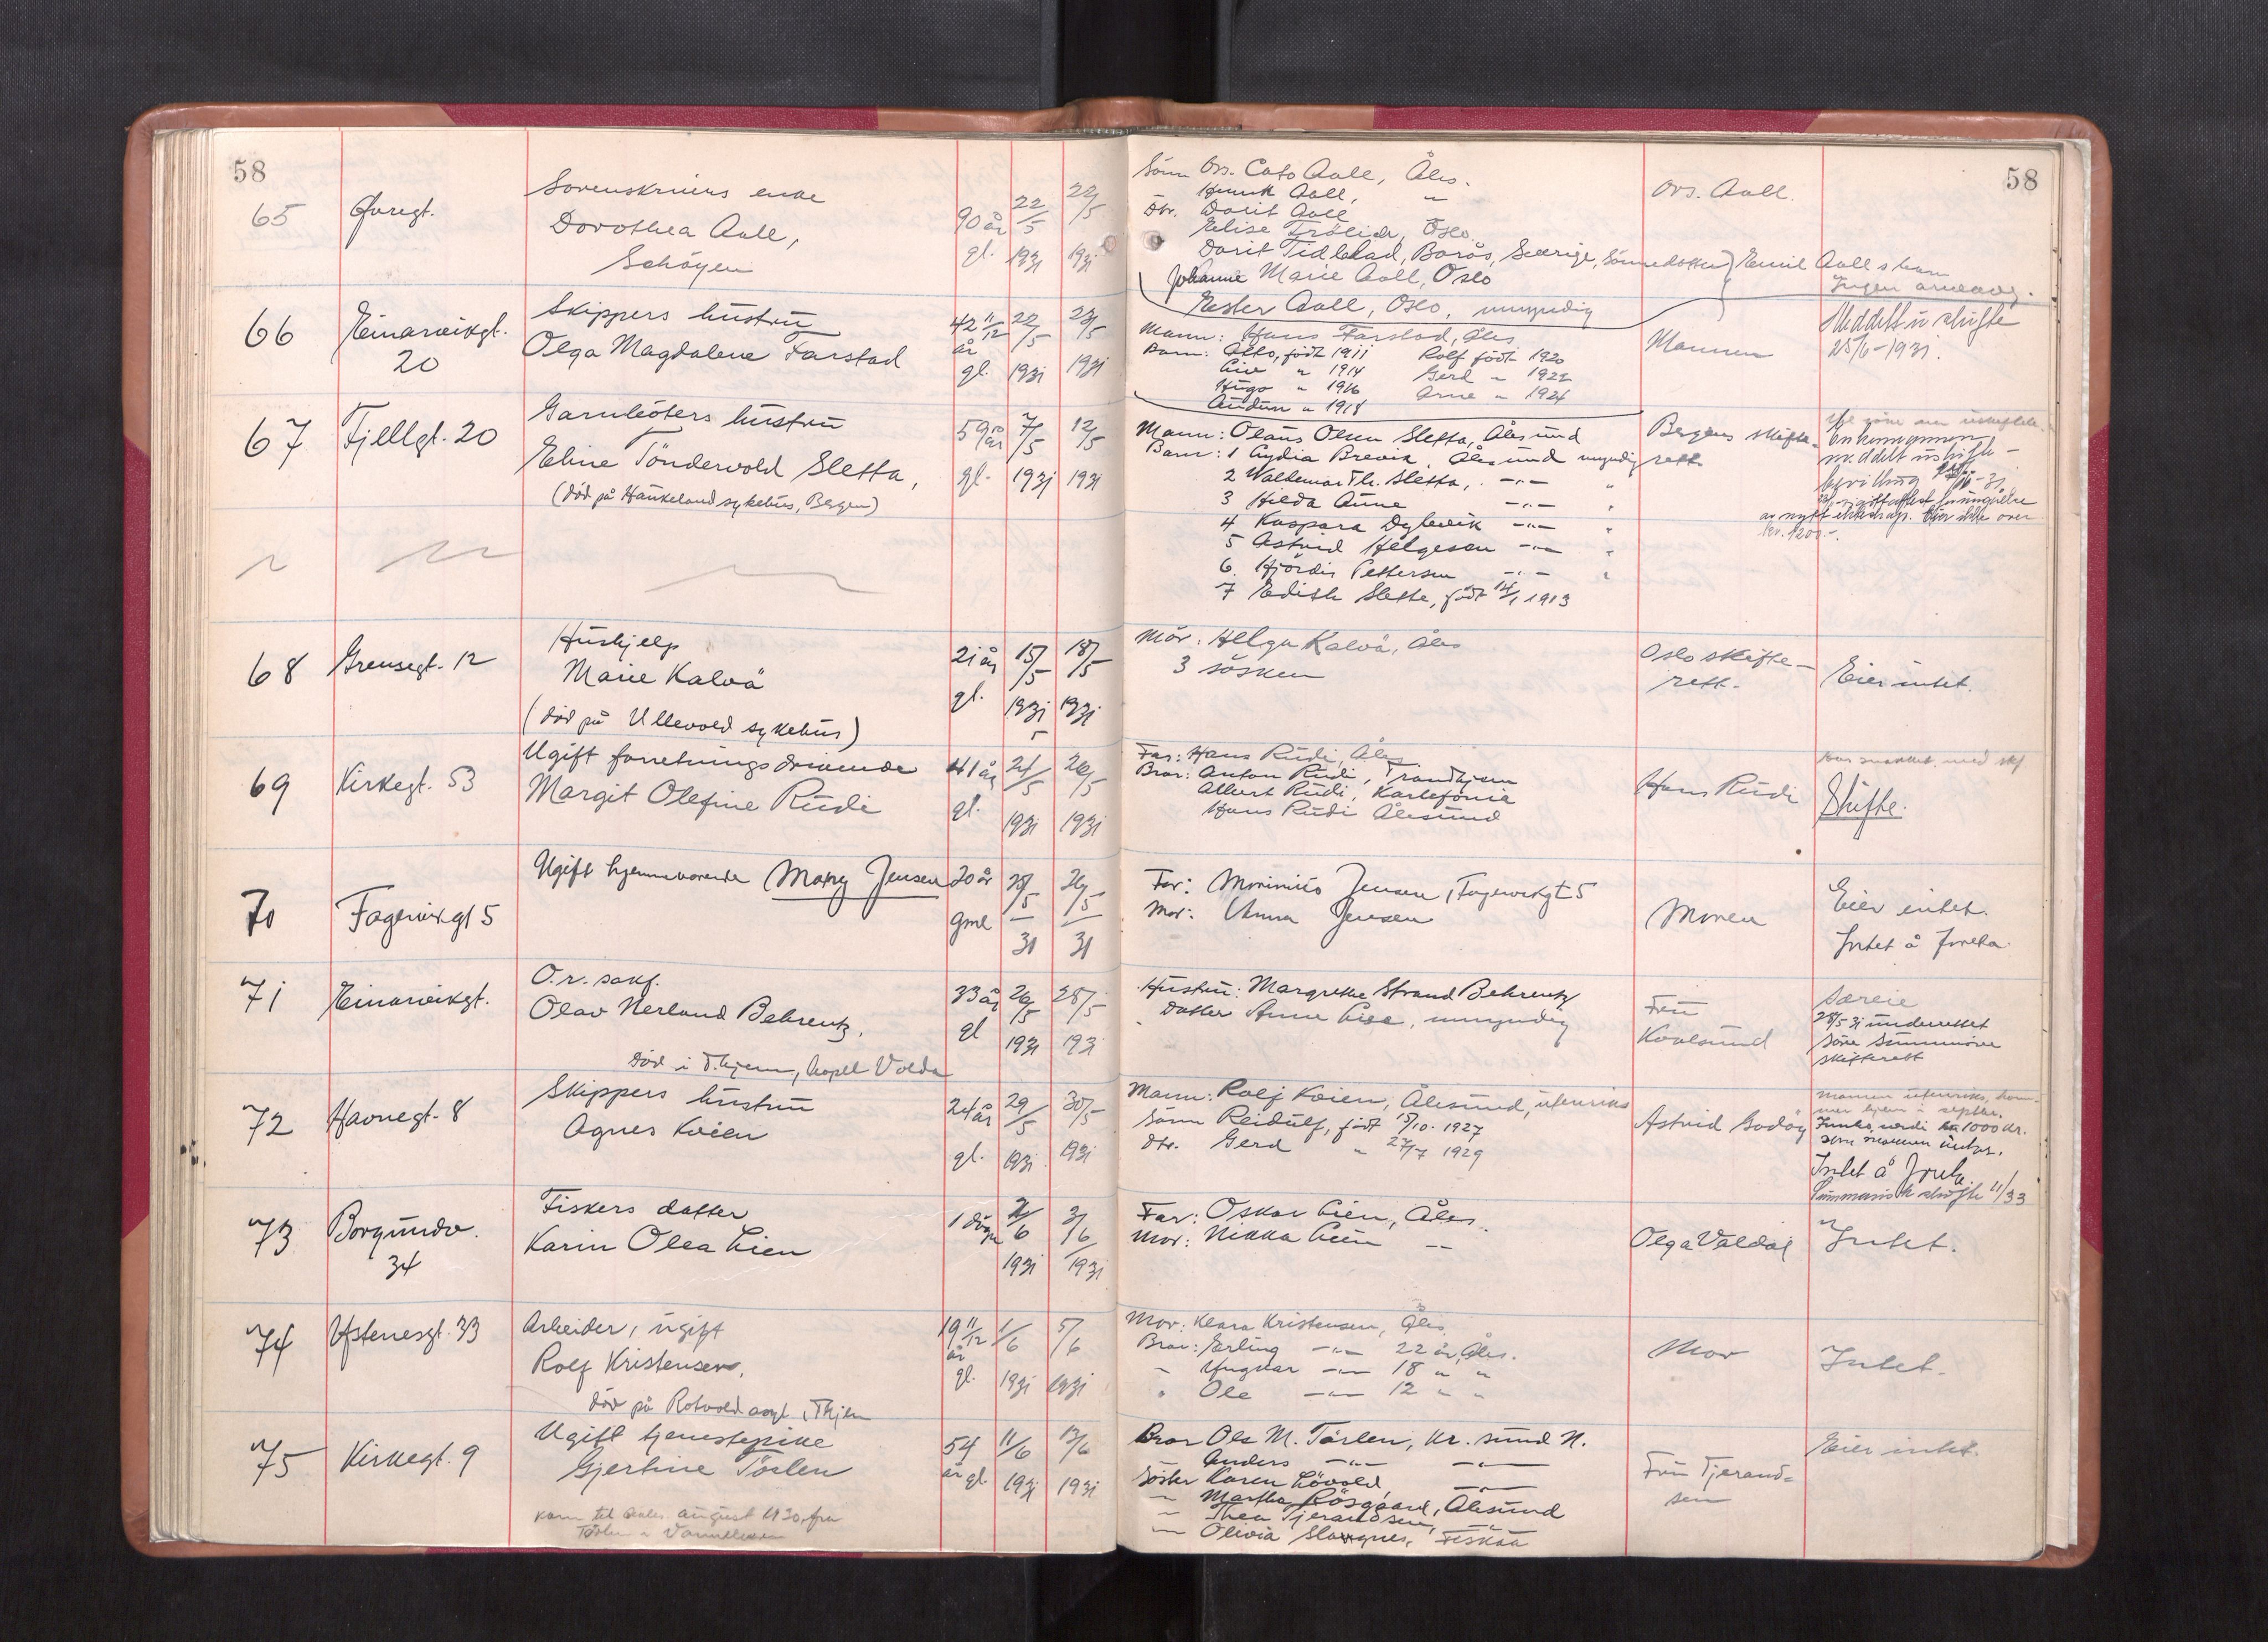 58
65
Øvregt.
Sorenskrivers enke
Dorothea Aall,
Schöyen
90 år
gl.
22/5
1931
22/5
1931
66
Einarvikgt.
20
Skippers hustru
Olga Magdalene Farstad
42 11/12
år
gl.
22/5
1931
23/5
1931
67
Fjellgt. 20
Garnbøters hustru
Eline Töndervold Sletta,
(død på Haukeland sykehus, Bergen)
59
år
gl.
7/5
1931
12/5
1931
68
Grensegt. 12
Hushjelp
Marie Kalvå
(død på Ullevold sykehus)
21 år
gl.
15/5
1931
18/5
1931
69
Kirkegt. 53
Ugift forretningsdrivende
Margit Olefine Rudi
41 år
gl.
24/5
1931
26/5
1931
70
Fagervikgt 5
Ugift hjemmeværende Mary Jensen
20 år
gml
25/5
31
26/5
31
71
Einarvikgt.
O.r. sakf.
Olav Nerland Behrentz.
død i T.hjem, kapel Volda
33 år
gl
26/5
1931
28/5
1931
72
Havnegt. 8
Skippers hustru
Agnes Koien
24 år
gl.
29/5
1931
30/5
1931
73
Borgundv.
34
Fiskers datter
Karin Olea Lien
1 døgn
2/6
1931
3/6
1931
74
Ystenesgt. 33
Arbeider, ugift
Rolf Kristensen,
død på Rotvold asyl, Thjem
19 11/12
år
gl.
1/6
1931
5/6
1931
75
Kirkegt. 9
Ugift tjenestepike
Gjertine Tårlen
kom til Aales. august 1930 fra
54
år gl.
11/6
1931
13/6
1931
58
Sönn Ors. Cato Aall, Åles.
Henrik Aall, "
Dtr. Dorit Aall
Elise Frölich, Oslo
Dorit Tidblad, Borås, Sverige, Sönnedatter
Johanne Marie Aall, Oslo
Ester Aall, Oslo, umyndig
Emil Aalls barn
Ingen arveavg.
Ors. Aall.
Mann: Hans Farstad, Åles
Barn: Otto, født 1911 Rolf født 1920
Liv " 1914 Gerd " 1922
Hugo " 1916 Arne " 1924
Audun " 1918
Mannen
Meddelt u skifte
25/6-1931.
Mann: Olaus Olsen Sletta, Ålesund
Barn: 1 Lydia Brevik, Ålesund myndig
2 Waldemar Th. Sletta, -"- "
3 Hilda Aune -"- "
4 Kaspara Dybvik -"- "
5 Astrid Helgesen -"- "
6. Hjördis Pettersen -"- "
7 Edith Sletta, født 14/1 1913
Bergens skifte-
rett.
meddelt uskifte-
bevilling
kr. 1200.-.
Mor: Helga Kalvå, Åles
3 søsken
Oslo skifte-
rett.
Eier intet.
Far: Hans Rudi, Åles
Bror: Anton Rudi, Trondhjem
Albert Rudi, Kalifonia
Hans Rudi Ålesund
Hans Rudi
Skifte.
Far: Jensen, Fagervikgt 5
Mor: Anna Jensen
Moren
Eier intet.
Intet å foreta.
Hustru: Margrethe Strand Behrentz
Datter Anne Lise, umyndig
Fru
Kvalsund
Særeie
28/5 31 underrettet
Söre Sunnmöre
skifterett
Mann: Rolf Koien, Ålesund, utenriks
Sönn Reidulf, født 15/10. 1927
Dtr. Gerd " 27/7 1929
Astrid Godøy
Mannen utenriks, kom-
mer hjem i septbr.
Innbo, verdi ca 1000 kr.
som mannen
Intet å foreta
Summarisk skifte 11/33
Far: Oskar Lien, Åles.
Mor: Nikka Lien -"-
Olga Valdal
Intet.
Mor: Klara Kristensen, Åles
Bror: Erling -"- 22 år, Åles.
" Yngvar -"- 18 " "
" Ole -"- 12 " "
Mor
Intet.
Bror Ole M. Tårlen, Kr. sund N.
Anders -"- -"-
Söster Karen Lövold, -"-
" Martha Rösgaard, Ålesund
" Thea Tjerandsen, -"-
" Olivia Slavgnes, Fiskaa
Fru Tjerand-
sen
Eier intet.